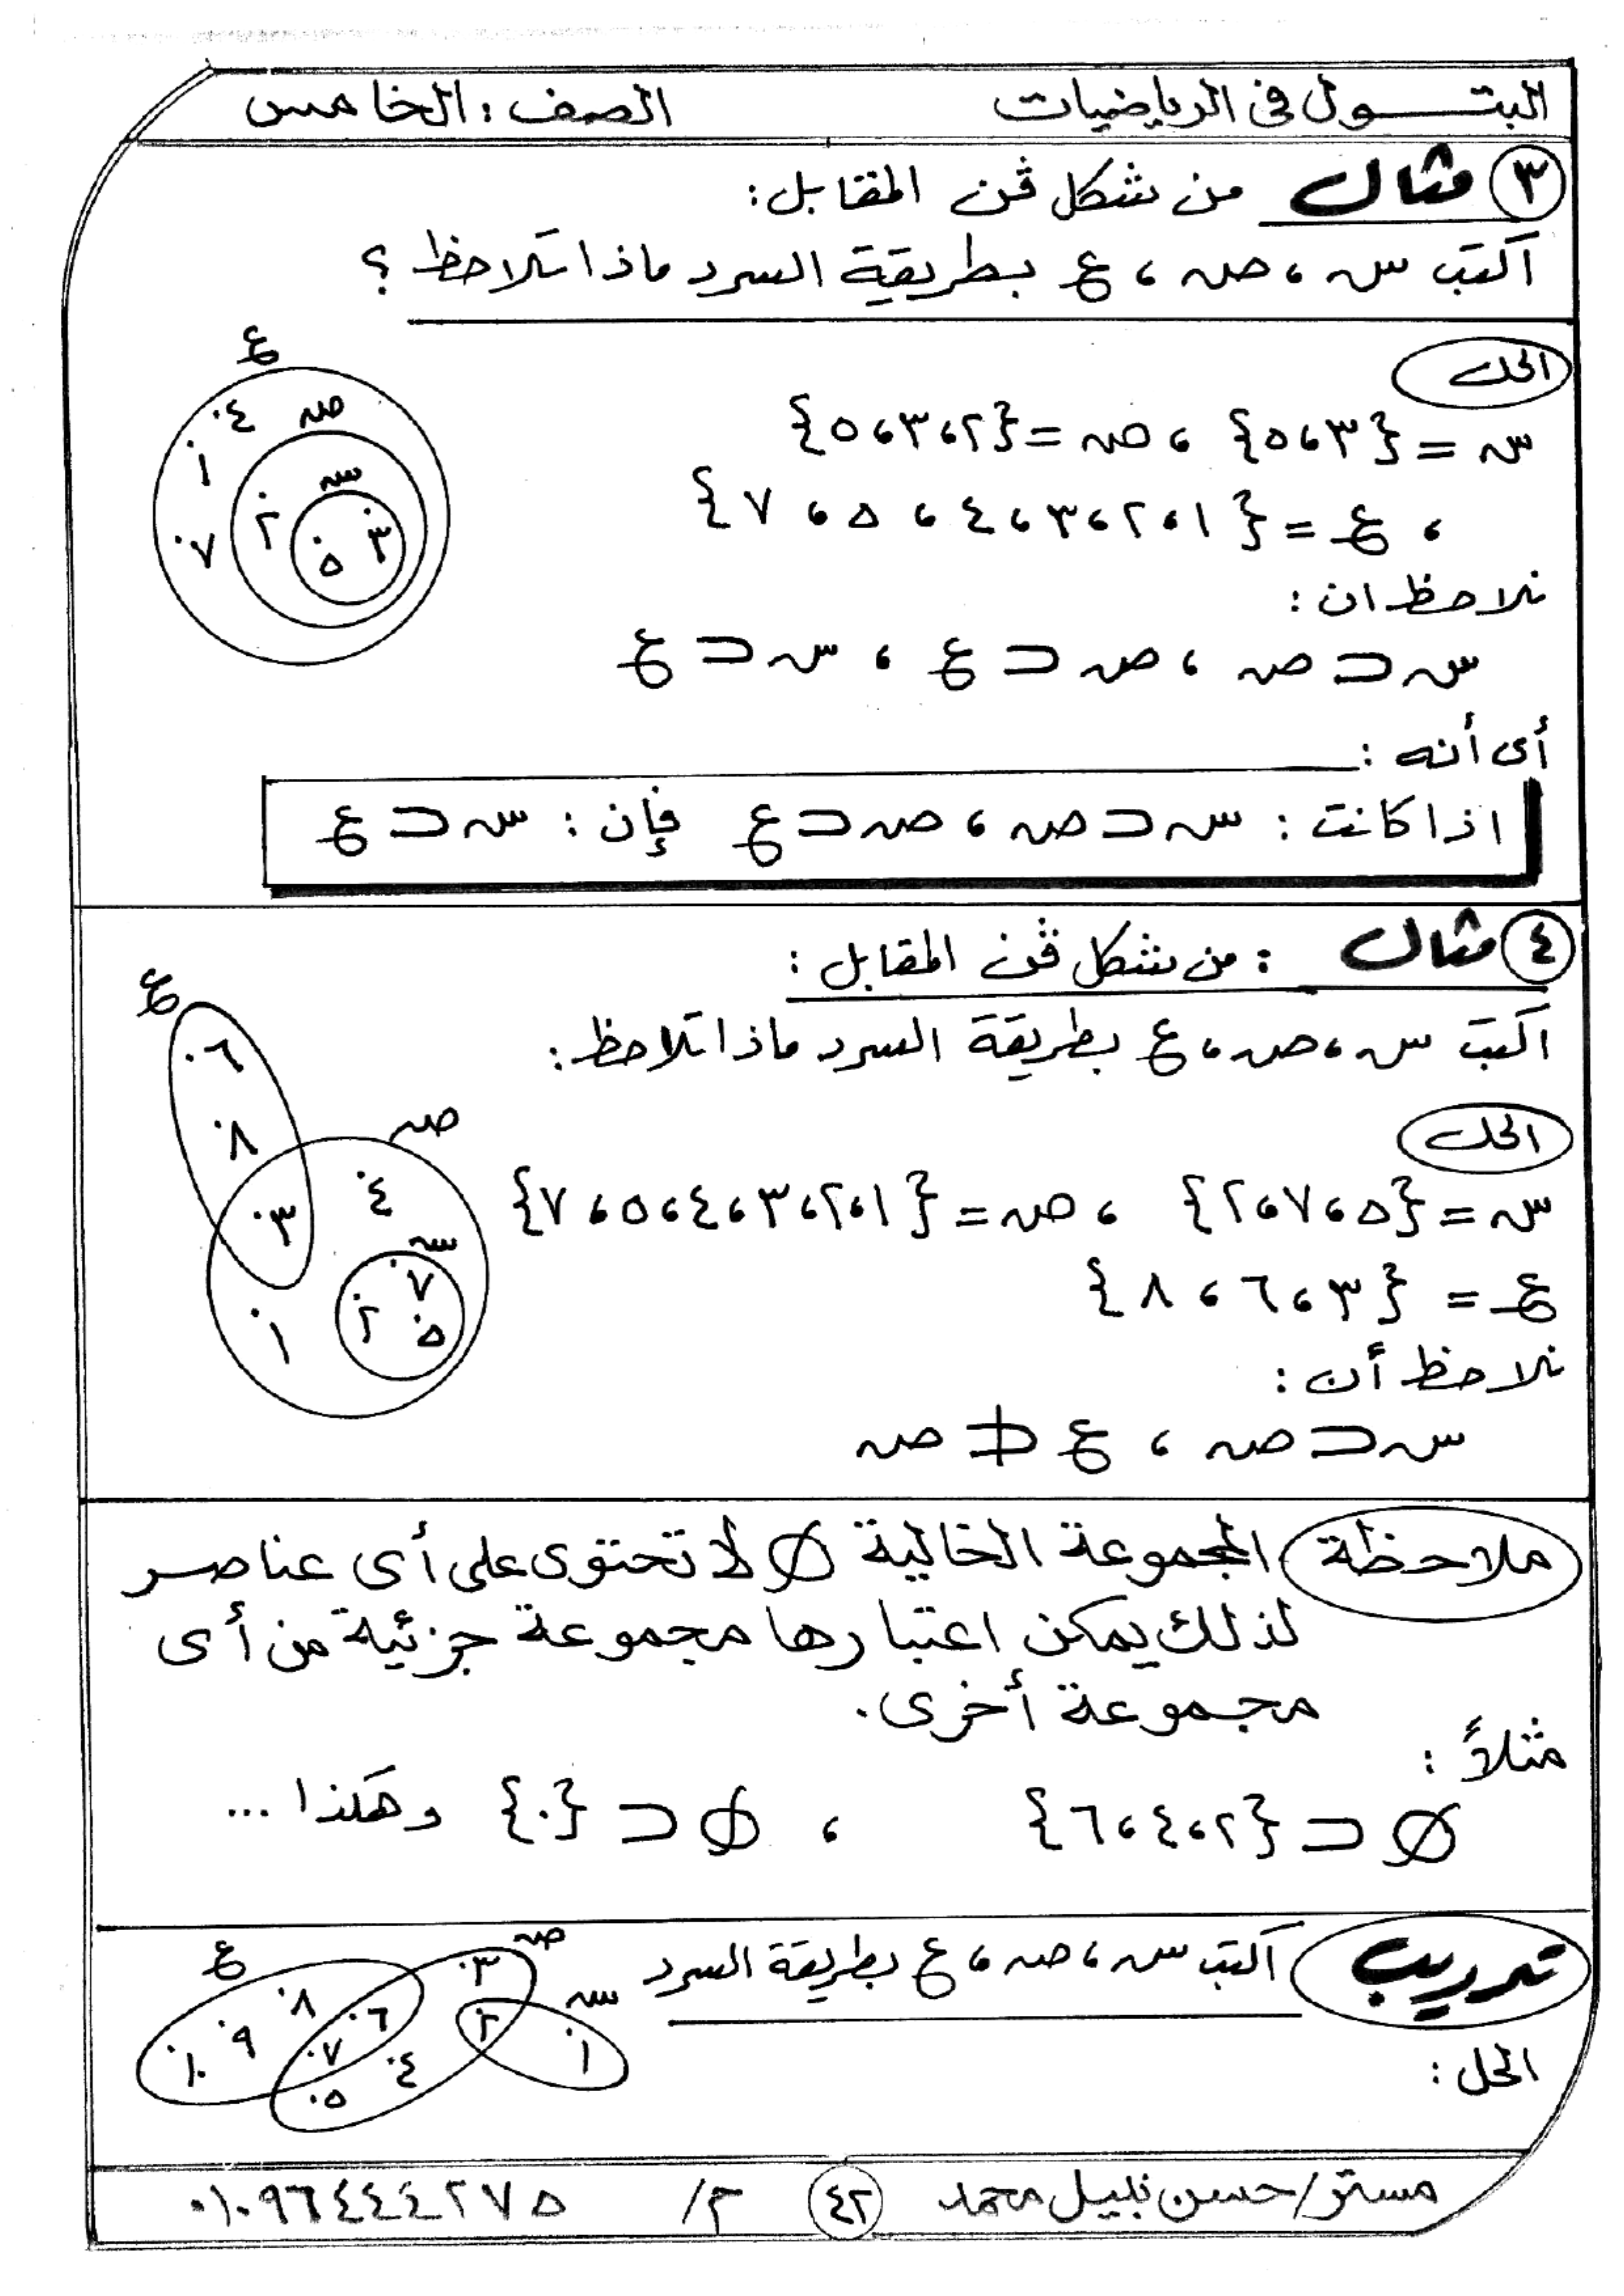 البتول فى الرياضيات الصف : الخامس
٣ مثال من شكل ڤن المقابل :
اكتب س ، ص ، ع بطريقة السرد ماذا تلاحظ ؟
الحل
س = {٣ ، ٥} ، ص = {٢ ، ٣ ، ٥}
، ع = {١ ، ٢ ، ٣ ، ٤ ، ٥ ، ٧}
نلاحظ ان :
س ⊂ ص ، ص ⊂ ع ، س ⊂ ع
أى أنه :
اذا كانت : س ⊂ ص ، ص ⊂ ع فإن : س ⊂ ع
ع
ص
س
٤
١
٧
٢
٣
٥
٤ مثال : من شكل ڤن المقابل :
اكتب س ، ص ، ع بطريقة السرد ماذا تلاحظ :
الحل
س = {٥ ، ٧ ، ٢} ، ص = {١ ، ٢ ، ٣ ، ٤ ، ٥ ، ٧}
ع = {٣ ، ٦ ، ٨}
نلاحظ أن :
س ⊂ ص ، ع ⊄ ص
ع
٦
٨
ص
٣
٤
س
٧
٢
٥
١
ملاحظة المجموعة الخالية ∅ لا تحتوى على أى عناصر
لذلك يمكن اعتبارها مجموعة جزئية من أى
مجموعة أخرى .
مثلاً :
∅ ⊂ {٢ ، ٤ ، ٦} ، ∅ ⊂ {٠} وهكذا ...
تدريب اكتب س ، ص ، ع بطريقة السرد
ع
ص
س
٣
٨
٦
٢
٩
١
٧
١٠
٤
٥
الحل :
مستر/ حسن نبيل محمد ٤٢ م/ ٠١٠٩٦٤٤٤٢٧٥